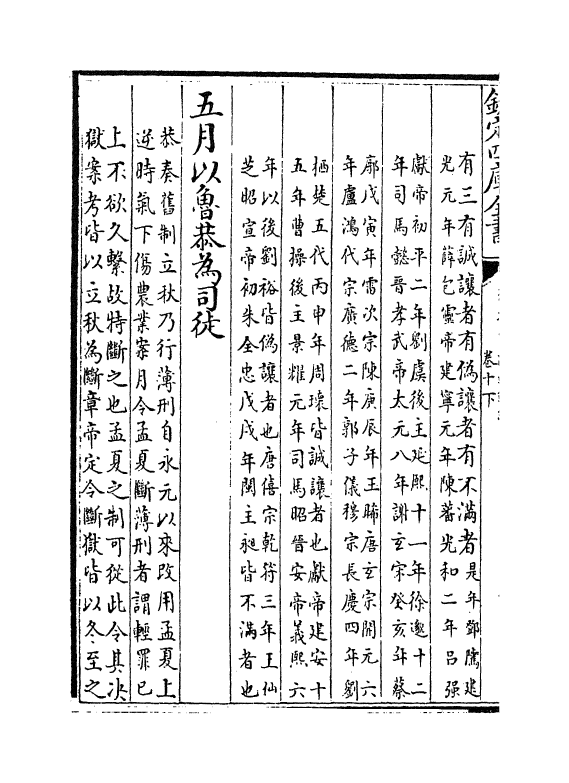 欽定四庫全書
卷十下
有三有誠讓者有偽讓者有不滿者是年鄧隲建
光元年薛包靈帝建寧元年陳蕃光和二年吕强
獻帝初平二年劉虞後主延熙十一年徐邈十二
年司馬懿晉孝武帝太元八年謝玄宋癸亥年蔡
廓戊寅年雷次宗陳庚辰年王晞唐玄宗開元六
年盧鴻代宗廣德二年郭子儀穆宗長慶四年劉
栖楚五代丙申年周瓌皆誠讓者也獻帝建安十
五年曹操後主景耀元年司馬昭晉安帝義熙六
年以後劉裕皆偽讓者也唐僖宗乾符三年王仙
芝昭宣帝初朱全忠戊戌年閩主昶皆不滿者也
五月以魯恭為司徒
恭奏舊制立秋乃行薄刑自永元以來改用孟夏上
逆時氣下傷農業案月令孟夏斷薄刑者謂輕罪已
上不欲久繫故特斷之也孟夏之制可從此令其决
獄案考皆以立秋為斷章帝定令斷獄皆以冬至之